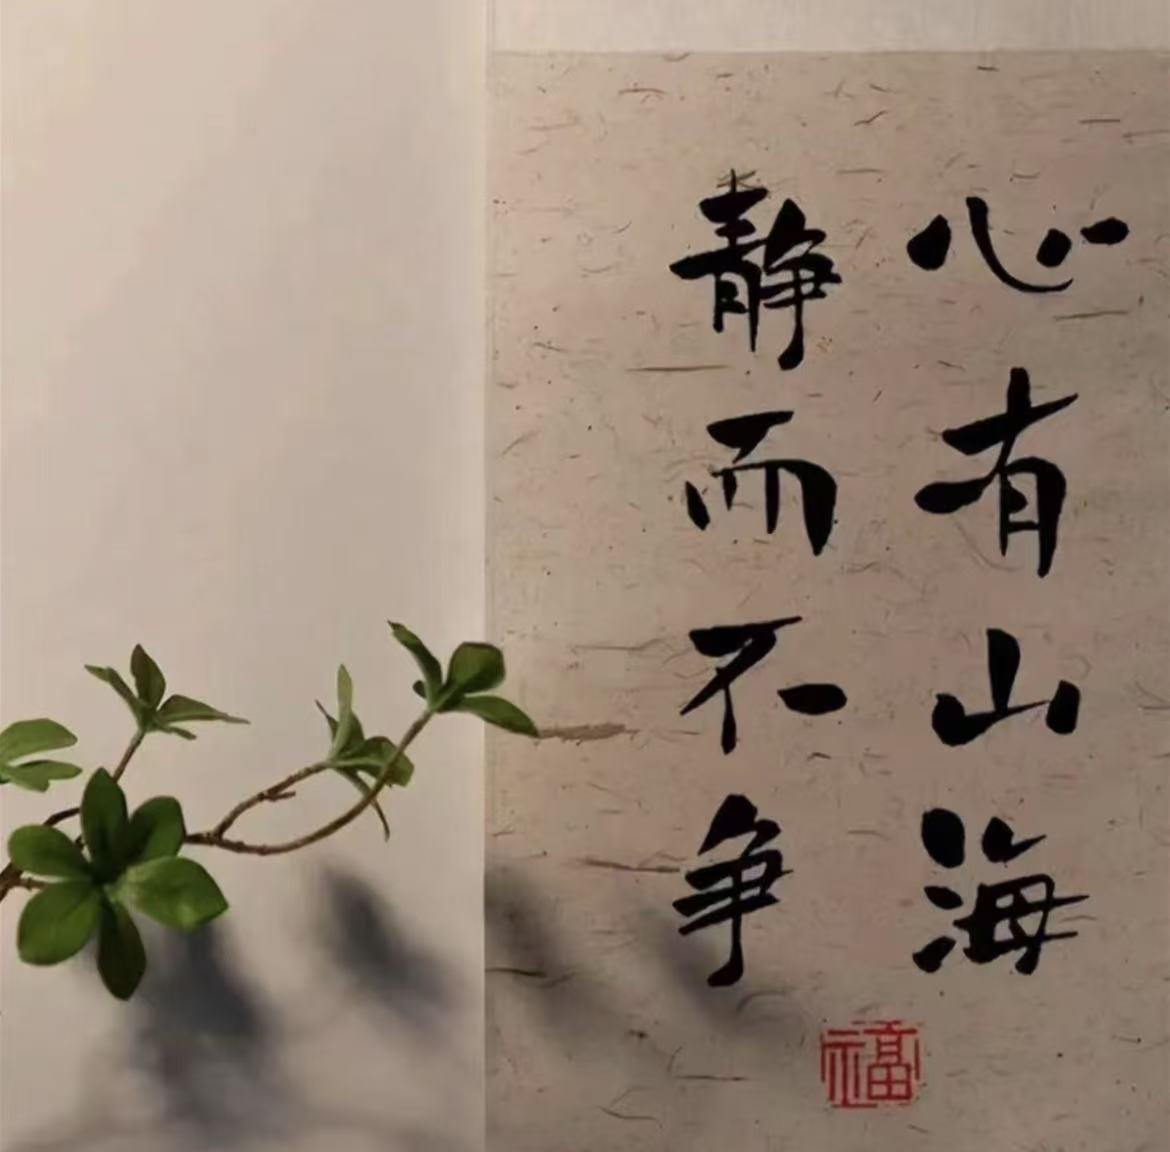 心有山海
静而不争
福